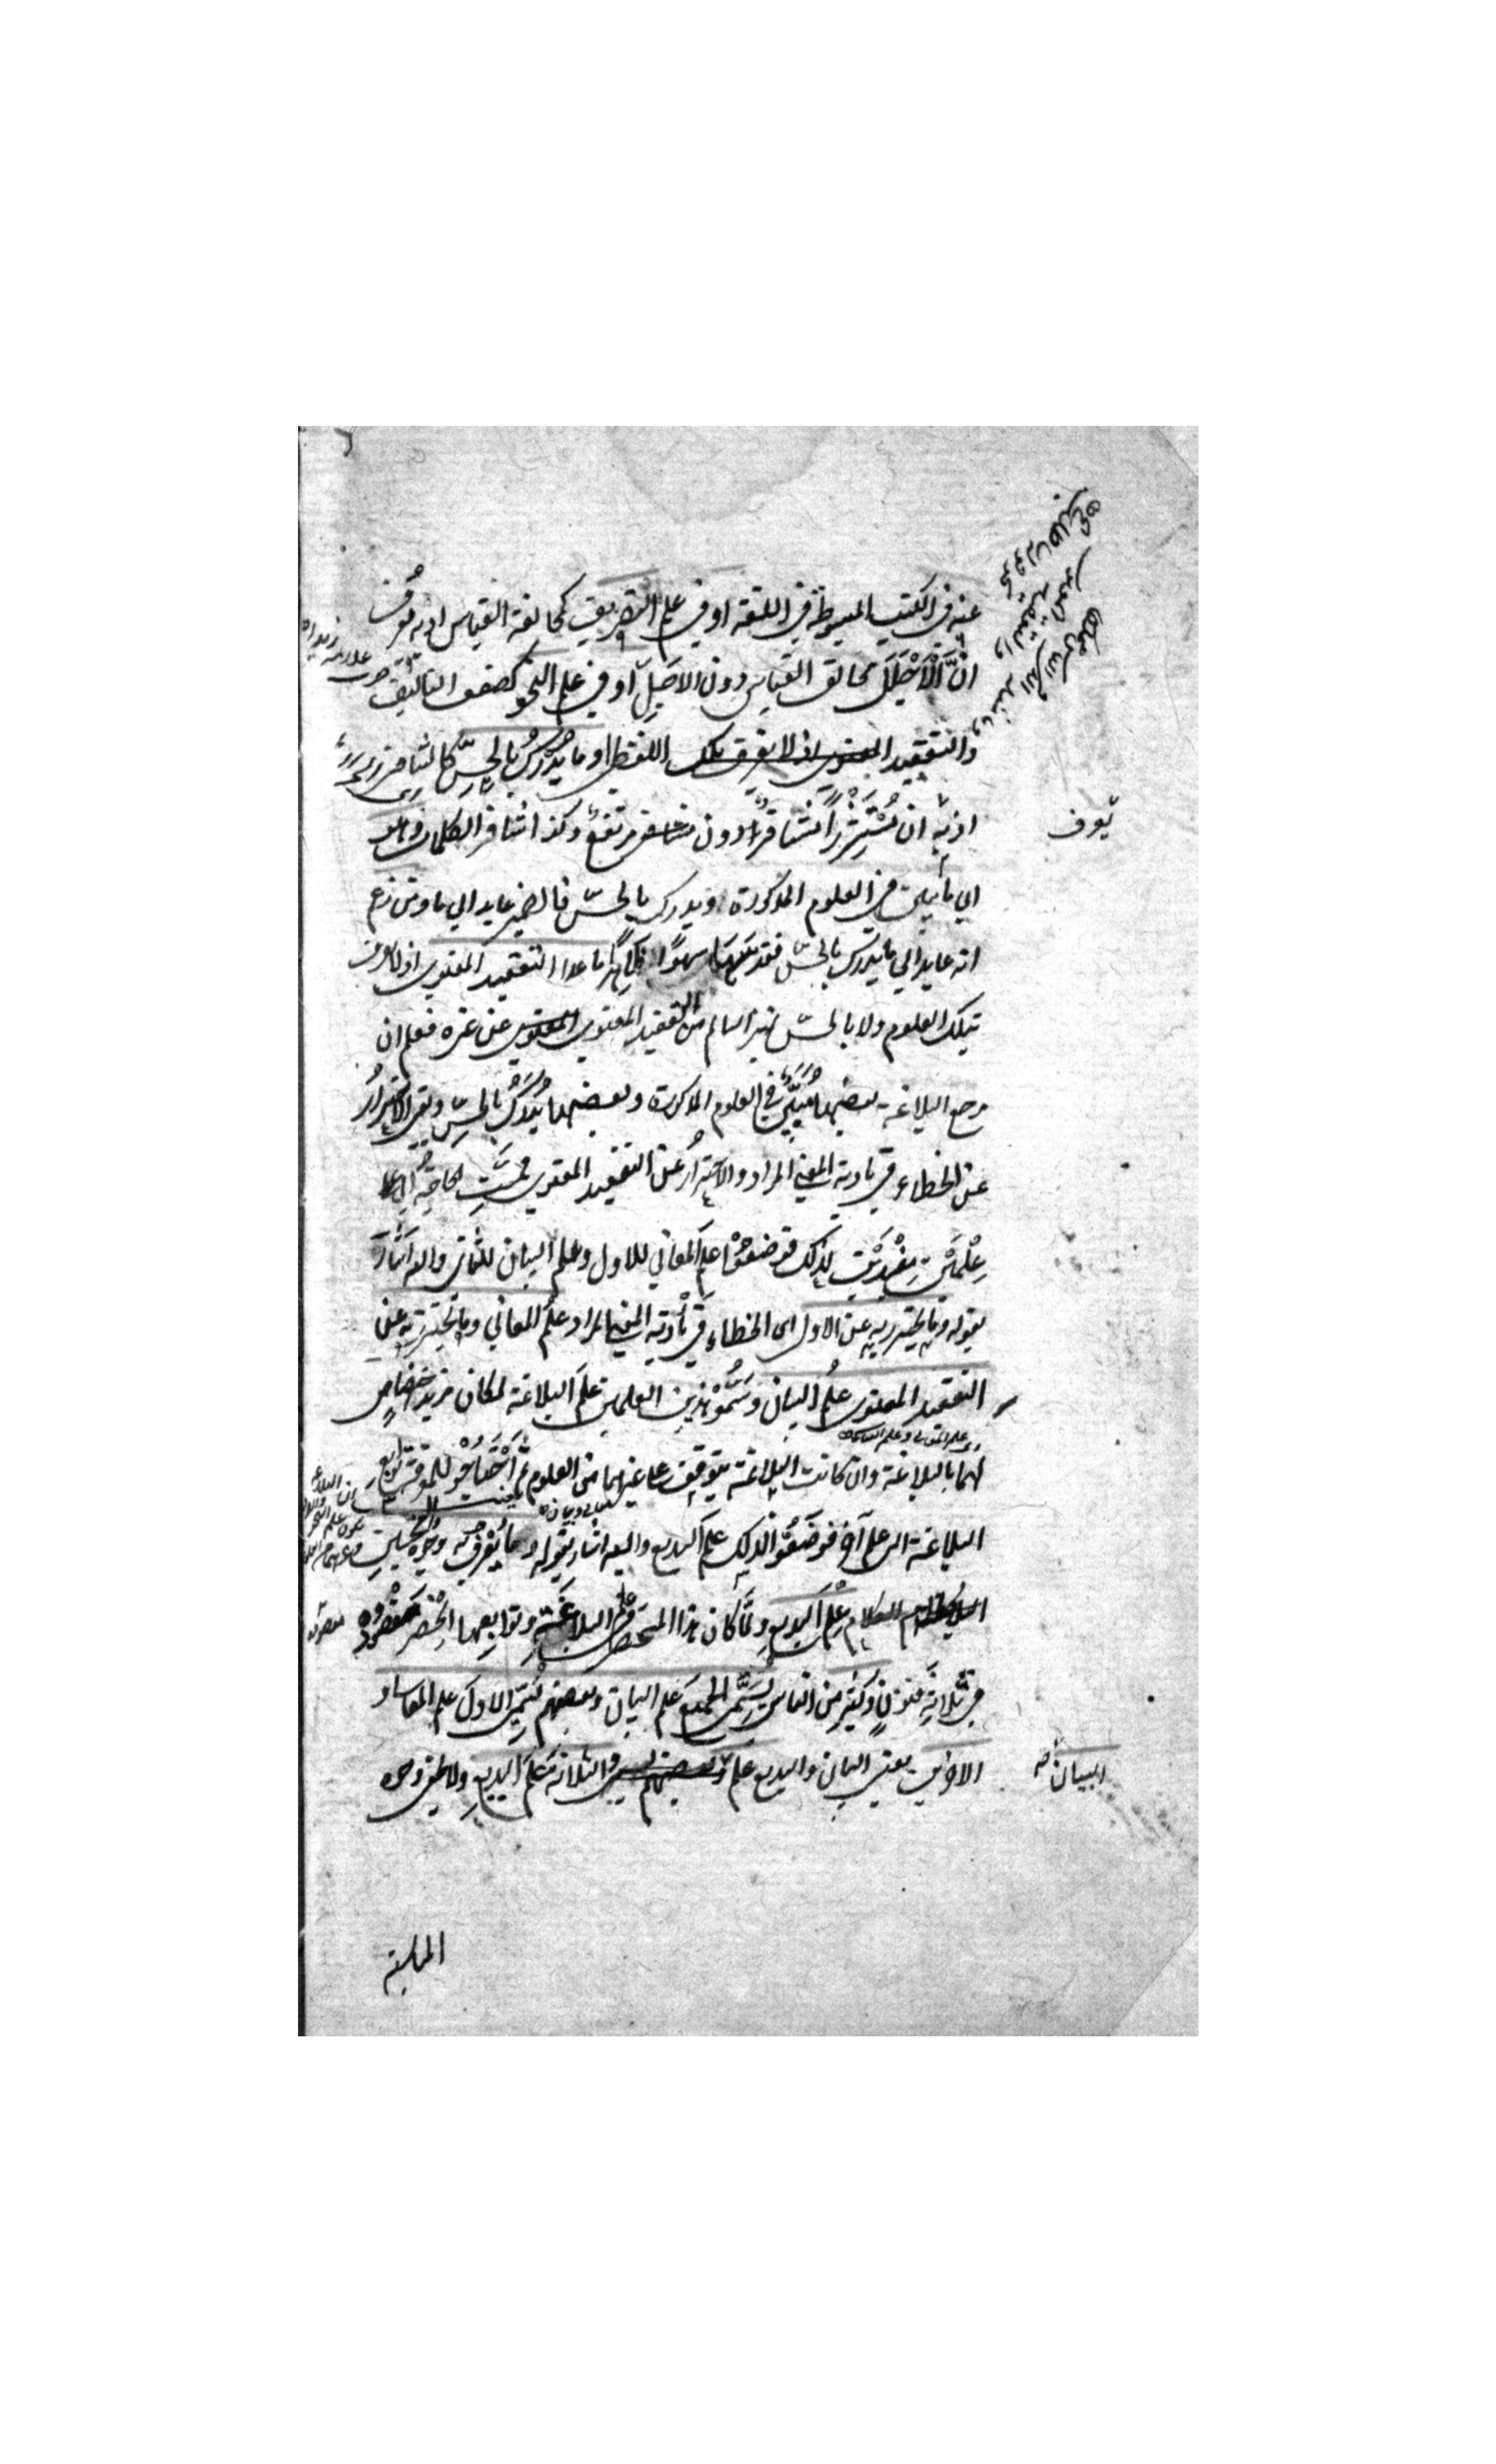 عنه في الكتب المبسوطة في اللغة او في علم التصريف كمخالفة القياس اذ به يعرف
ان الاجلل مخالف القياس دون الاجل او في علم النحو كضعف التاليف
والتعقيد اللفظي او ما يدرك بالحس كالتنافر
اذ به ان مستشزرا متنافر دون مرتفع وكذا تنافر الكلمات وهو
يعرف
اي ما يبين في العلوم المذكورة او يدرك بالحس فالضمير عايد الي ما ومن زعم
انه عايد الي ما يدرك بالحس فقد سها سهوا ظاهرا ما عدا التعقيد المعنوي اذ لا يعرف
بتلك العلوم ولا بالحس تميز السالم من التعقيد المعنوي عن غيره فعلم ان
مرجع البلاغة بعضها مبين في العلوم المذكورة وبعضها يدرك بالحس وبقي الاحتراز
عن الخطاء في تادية المعني المراد والاحتراز عن التعقيد المعنوي فمست الحاجة الي
علمين مفيدين لذلك فوضعوا علم المعاني للاول وعلم البيان للثاني واليه اشار
بقوله وما يحترز به عن الاول اي الخطاء في تأدية المعني المراد علم المعاني وما يحترز به عن
التعقيد المعنوي علم البيان وسموا هذين العلمين علم البلاغة لمكان مزيد اختصاص
اي علم المعاني وعلم البيان
لهما بالبلاغة وان كانت البلاغة تتوقف علي غيرهما من العلوم ثم احتاجوا لمعرفة توابع
البلاغة الي علم آخر فوضعوا لذلك علم البديع واليه اشار بقوله وما يعرف به وجوه التحسين
علم البديع ولما كان هذا المختصر في علم البلاغة وتوابعها انحصر مقصوده
في ثلاثة فنون وكثير من الناس يسمي الجميع علم البيان وبعضهم يسمي الاول علم المعاني و
الاخيرين يعني البيان والبديع علم البيان والثلاثة علم البديع ولا يخفي وجوه
المناسبة